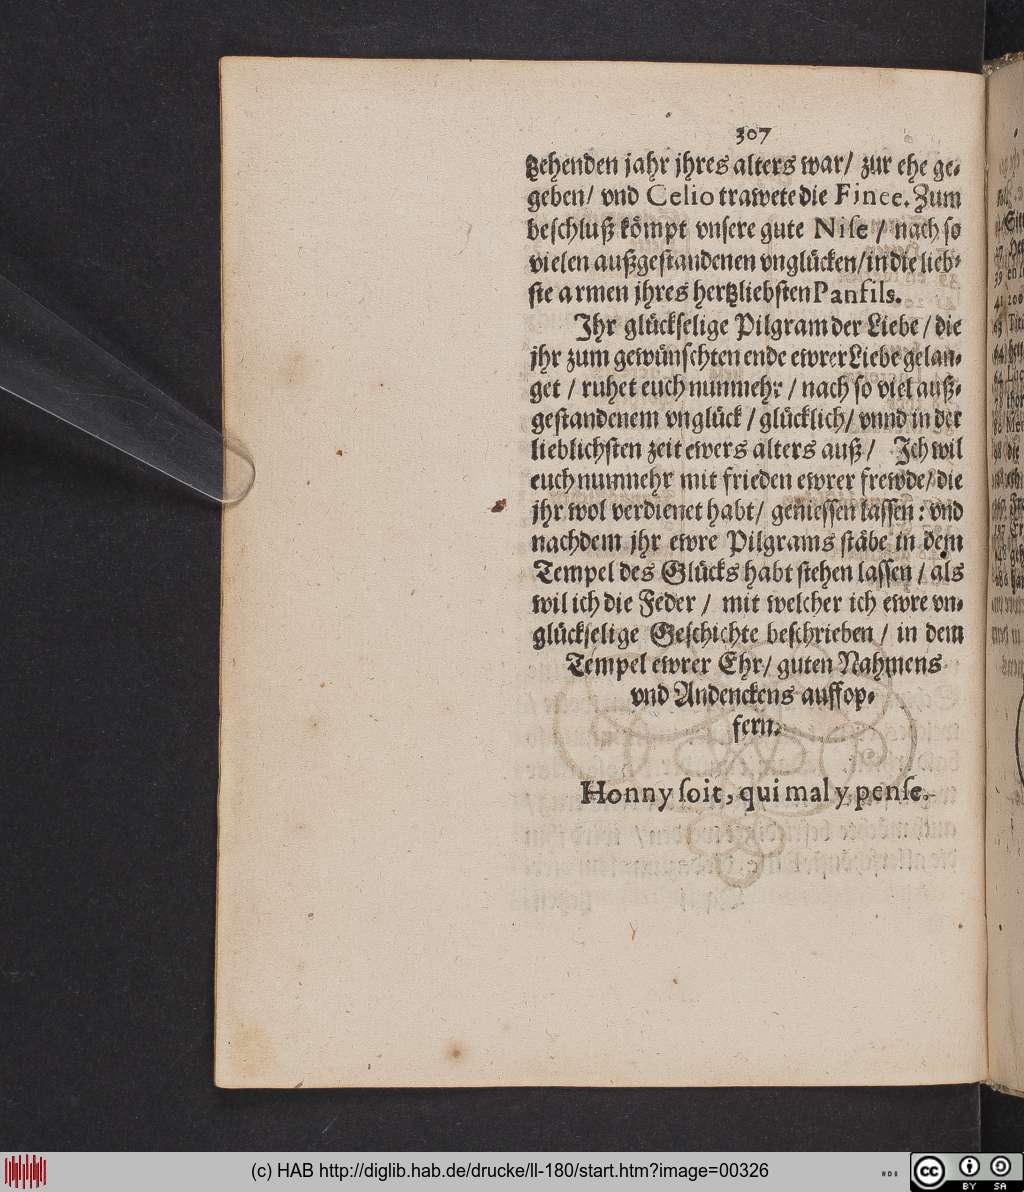 307
tzehenden jahr jhres alters war/ zur ehe ge-
geben/ vnd Celio trawete die Finee. Zum
beschluß kömpt vnsere gute Nise / nach so
vielen außgestandenen vnglücken/in die lieb-
ste armen jhres hertzliebsten Panfils.
Ihr glückselige Pilgram der Liebe / die
jhr zum gewünschten ende ewrer Liebe gelan-
get / ruhet euch nunmehr / nach so viel auß-
gestandenem vnglück / glücklich/ vnnd in der
lieblichsten zeit ewers alters auß / Ich wil
euch nunmehr mit frieden ewrer frewde/ die
jhr wol verdienet habt/ geniessen lassen: vnd
nachdem jhr ewre Pilgrams stäbe in dem
Tempel des Glücks habt stehen lassen / als
wil ich die Feder / mit welcher ich ewre vn-
glückselige Geschichte beschrieben / in dem
Tempel ewrer Ehr/ guten Nahmens
vnd Andenckens auffop-
fern.
Honny soit, qui mal y pense.
(c) HAB http://diglib.hab.de/drucke/ll-180/start.htm?image=00326
cc BY SA